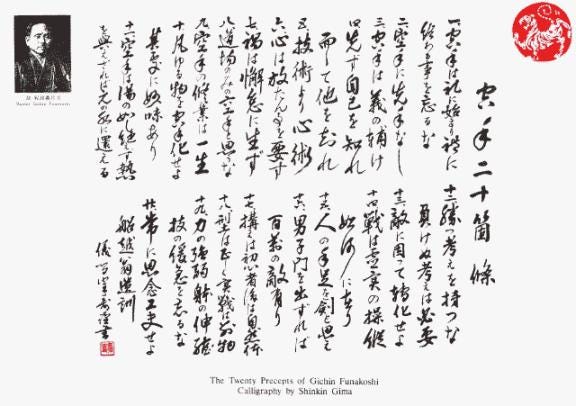 空手二十箇條
一、空手は礼に始まり禮に
終わる事を忘るな
二、空手に先手なし
三、空手は義の補け
四、先づ自己を知れ
而して他を知れ
五、技術より心術
六、心は放たん事を要す
七、禍は懈怠に生ず
八、道場のみの空手と思うな
九、空手の修業は一生
十、凡ゆる物を空手化せよ
其處に妙味あり
十一、空手は湯の如し絶えず熱
を與えざれば元の水に還える
十二、勝つ考えを持つな
負けぬ考えは必要
十三、敵に因って轉化せよ
十四、戦は虚実の操縦
如何に在り
十五、人の手足を剣と思え
十六、男子門を出づれば
百萬の敵有り
十七、構えは初心者に後は自然体
十八、型は正しく実戦は別物
十九、力の強弱躰の伸縮
技の緩急を忘るな
二十、常に思念工夫せよ
船越翁遺訓
The Twenty Precepts of Gichin Funakoshi
Calligraphy by Shinkin Gima